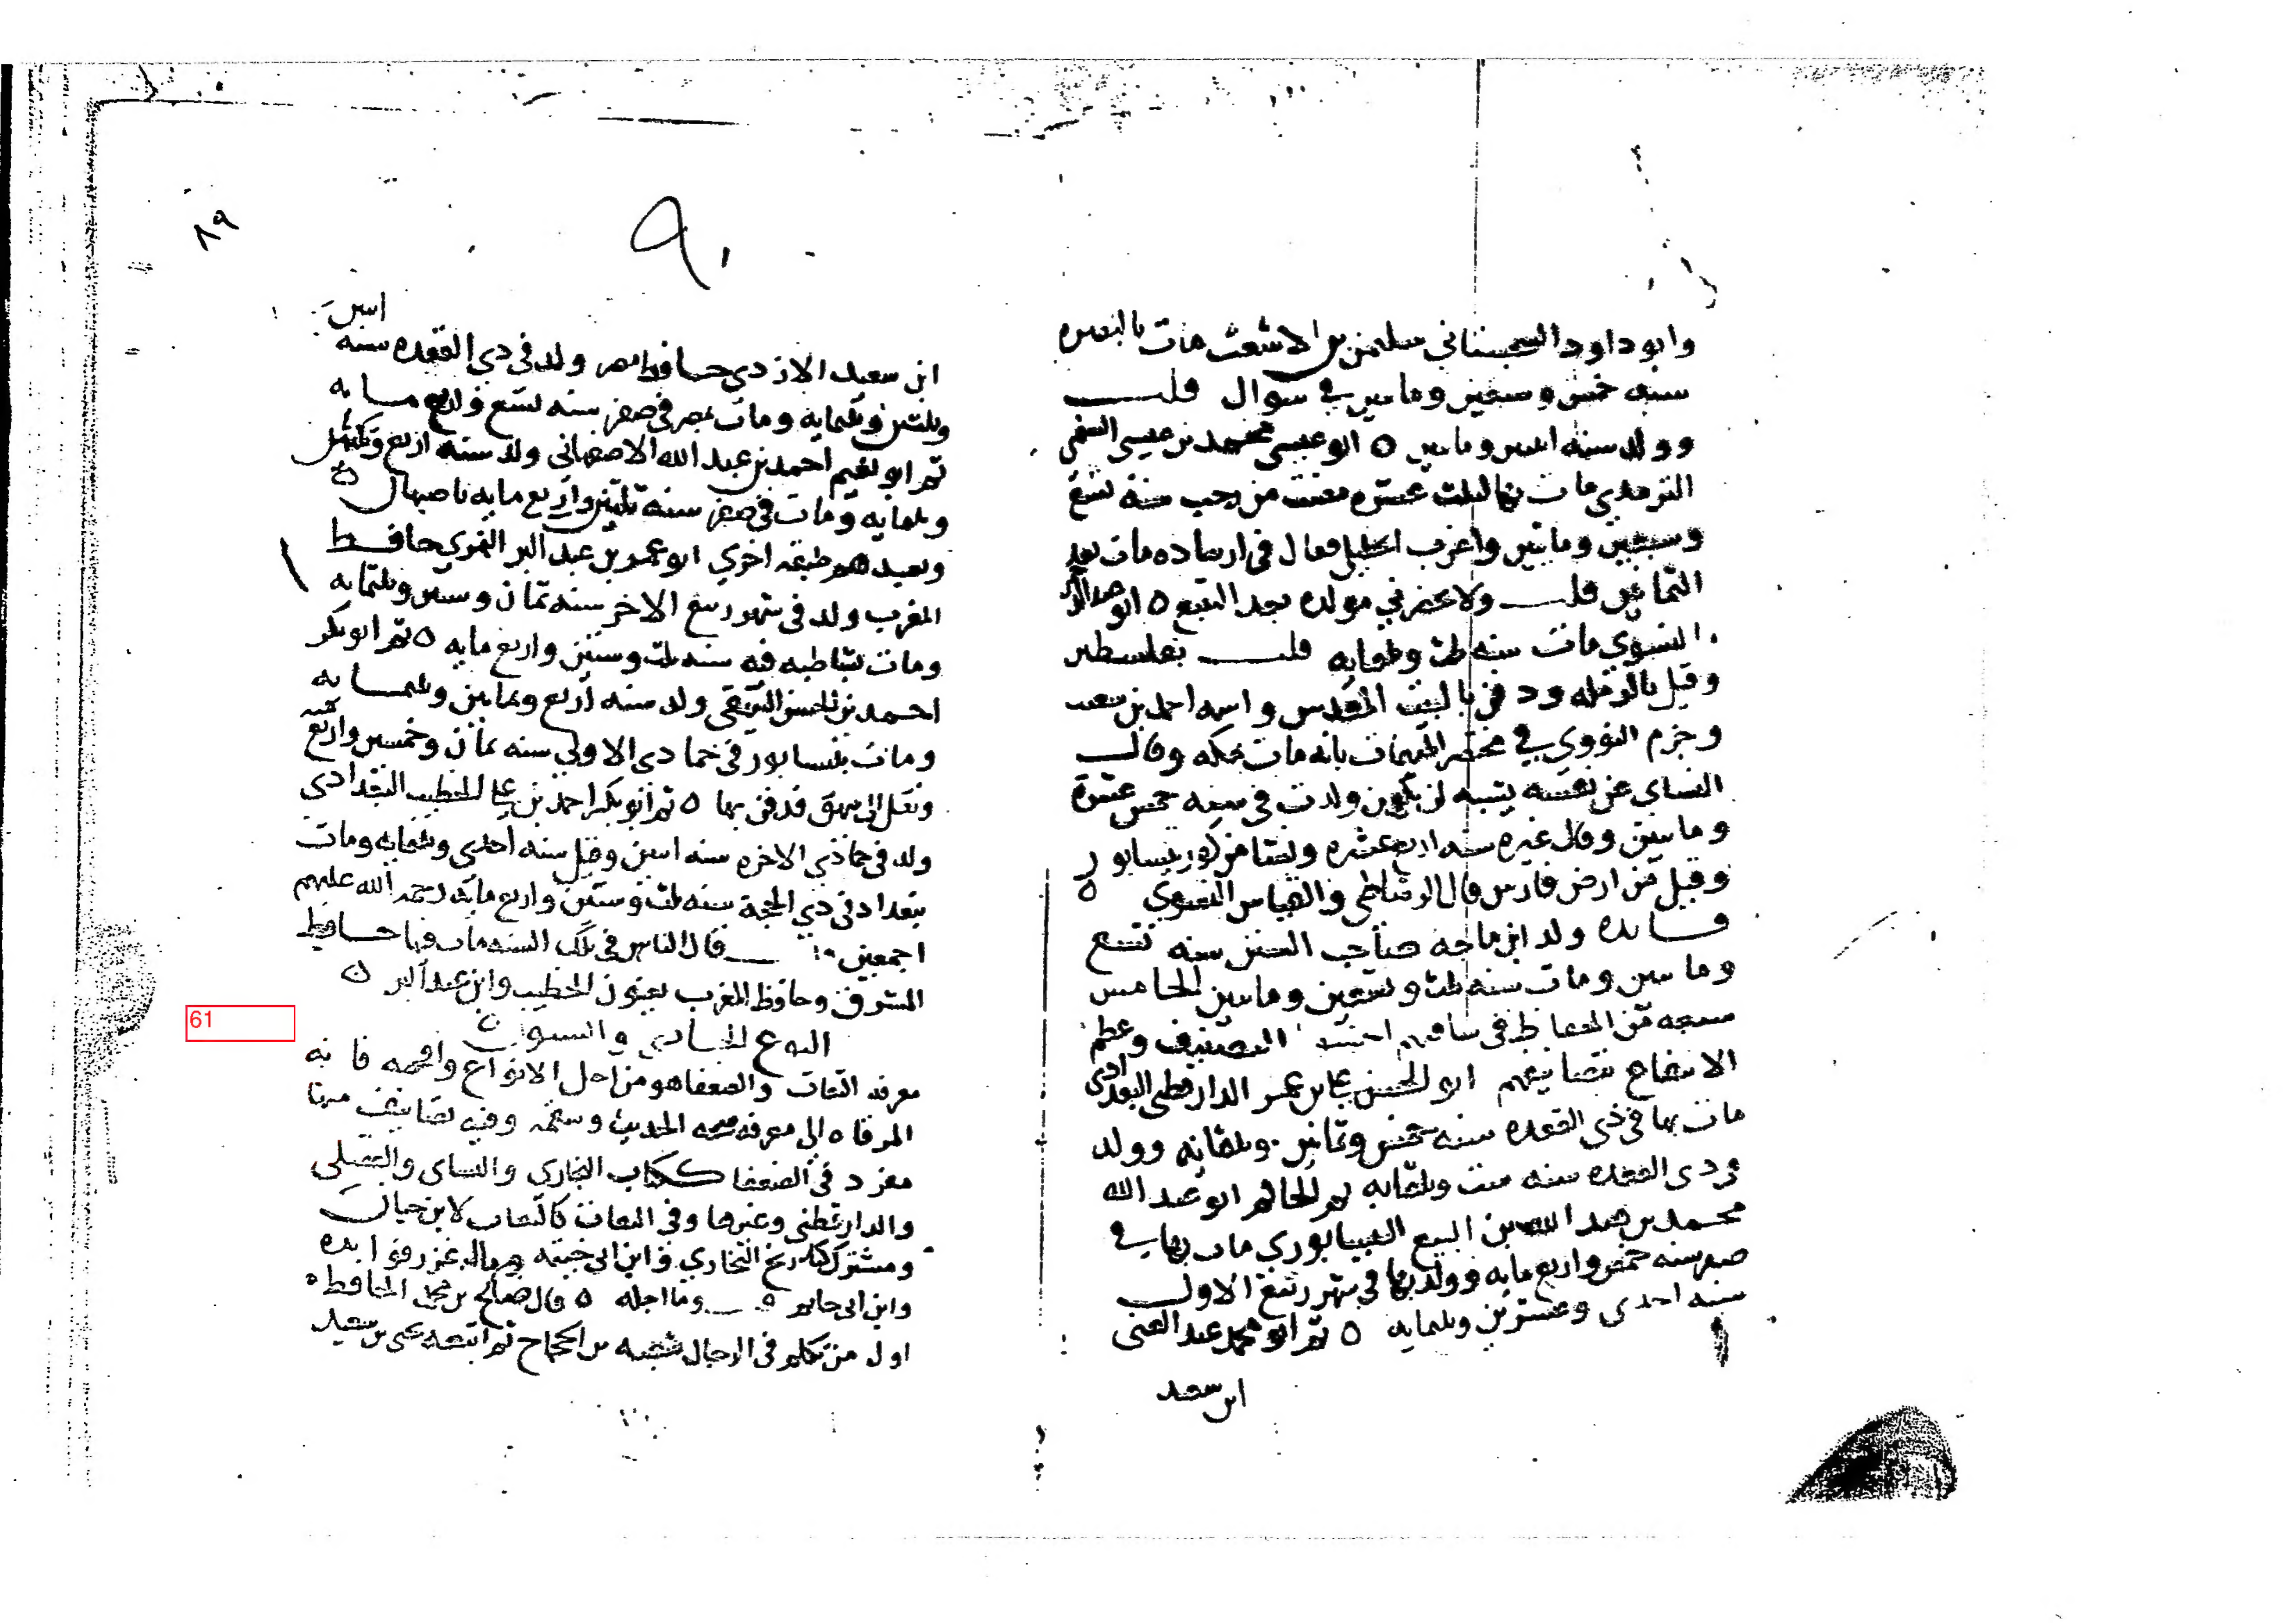 وابو داود السجستاني سليمن بن الاشعث مات بالبصره
سنه خمس وسبعين وماىىں في شوال قلت
وولد سنه اىىىں وماىىں ه ابو عيسى محمد بن عيسى السلمي
الترمذي مات بها لثلث عشره مضت من رجب سنة تسع
وسبعين ومايتين واغرب الخليلي فقال في ارشاده مات بعد
الثمانين قلت ولا يحضرني مولده بعد التتبع ه ابو عبد الرحمن
النسوي مات سنه ثلث وثلثمايه قلت بفلسطين
وقيل بالرمله ودفن بالبيت المقدس واسمه احمد بن شعيب
وجزم النووي في مختصر المبهمات بانه مات بمكه وقال
النساي عن نفسه يشبه ان يكون ولدت في سنه خمس عشرة
ومايتين وقال غيره سنه اربع عشره ونسا من كور نيسابور
وقيل من ارض فارس قال الرشاطي والقياس النسوي ه
فايده ولد ابن ماجه صاحب السنن سنه تسع
ومايتين ومات سنه ثلث وسبعين ومايتين الخامس
سبعه من الحفاظ في ساقتهم احسنوا التصنيف وعظم
الانتفاع بتصانيفهم ابو الحسن علي بن عمر الدارقطني البغدادي
مات بها في ذي القعده سنه خمس وثمانين وثلثمايه وولد
في ذي القعده سنه ست وثلثمايه ثم الحاكم ابو عبد الله
محمد بن عبد الله بن البيع النيسابوري مات بها في
صفر سنه خمس واربع مايه وولد بها في شهر ربيع الاول
سنه احدى وعشرين وثلثمايه ه ثم ابو محمد عبد الغني
ابن سعيد
٨٩
٩٠
اثنين
ابن سعيد الازدي حافظ مصر ولد في ذي القعده سنه
وثلثين وثلثمايه ومات بمصر في صفر سنه تسع واربع مايه
ثم ابو نعيم احمد بن عبد الله الاصفهاني ولد سنه اربع وثلثين
وثلثمايه ومات في صفر سنه ثلثين واربع مايه باصبهان ه
وبعدهم طبقه اخري ابو عمر بن عبد البر النمري حافظ
المغرب ولد في شهر ربيع الاخر سنه ثمان وستين وثلثمايه
ومات بشاطبه فيه سنه ثلث وستين واربع مايه ه ثم ابو بكر
احمد بن الحسين البيهقي ولد سنه اربع وثمانين وثلثمايه
ومات بنيسابور في جمادي الاولي سنه ثمان وخمسين واربع مايه
ونقل الى بيهق فدفن بها ه ثم ابو بكر احمد بن علي الخطيب البغدادي
ولد في جمادي الاخره سنه اثنين وقيل سنه احدى وتسعين وثلثمايه ومات
ببغداد في ذي الحجة سنه ثلث وستين واربع مايه رحمة الله عليهم
اجمعين قال الناس في تلك السنه مات فيها حافظ
المشرق وحافظ المغرب يعنون الخطيب وابن عبد البر ه
النوع الحادي والستون ه
معرفه الثقات والضعفا هو من اجل الانواع وافخمه فانه
المرقاه الي معرفه صحه الحديث وسقمه وفيه تصانيف منها
مفرد في الضعفا ككتاب البخاري والنساي والعقيلي
والدارقطني وغيرها وفي الثقات كالثقات لابن حبان
ومشترك كتاريخ البخاري وابن ابي خيثمه وما اغزر فوايده
وابن ابي حاتم ه وما اجله ه قال صالح بن محمد الحافظ ه
اول من تكلم في الرجال شعبه بن الحجاج ثم اتبعه يحيى بن سعيد
61